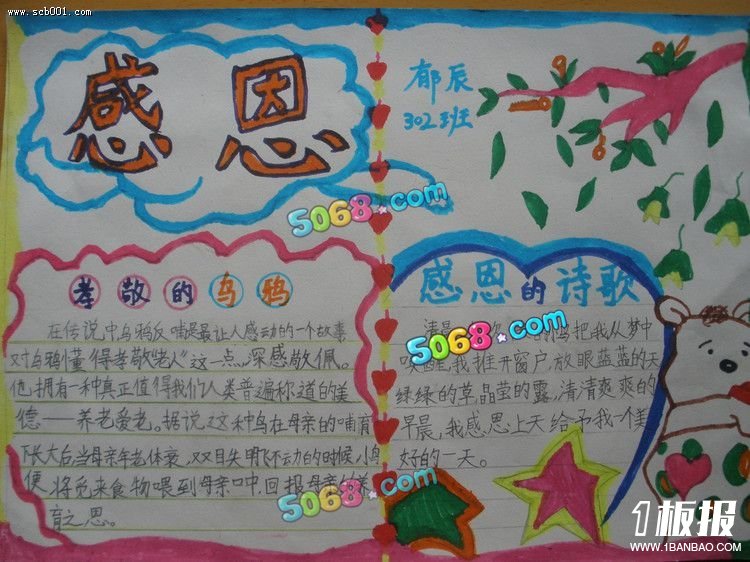 www.scb001.com
感恩
郁辰
302班
5068.com
孝敬的乌鸦
在传说中乌鸦反哺是最让人感动的一个故事
对乌鸦懂"得孝敬老人"这一点,深感敬佩。
他拥有一种真正值得我们人类普遍称道的美
德——养老爱老。据说这种鸟在母亲的哺育
下长大后,当母亲年老体衰,双目失明飞不动的时候,小鸟
便将觅来食物喂到母亲口中,回报母亲的
育之恩。
5068.com
感恩的诗歌
清晨 的鸟把我从梦中
唤醒,我推开窗户,放眼蓝蓝的天
绿绿的草晶莹的露,清清爽爽的
早晨,我感恩上天给予我一个美
好的一天。
5068.com
1板报
WWW.1BANBAO.COM